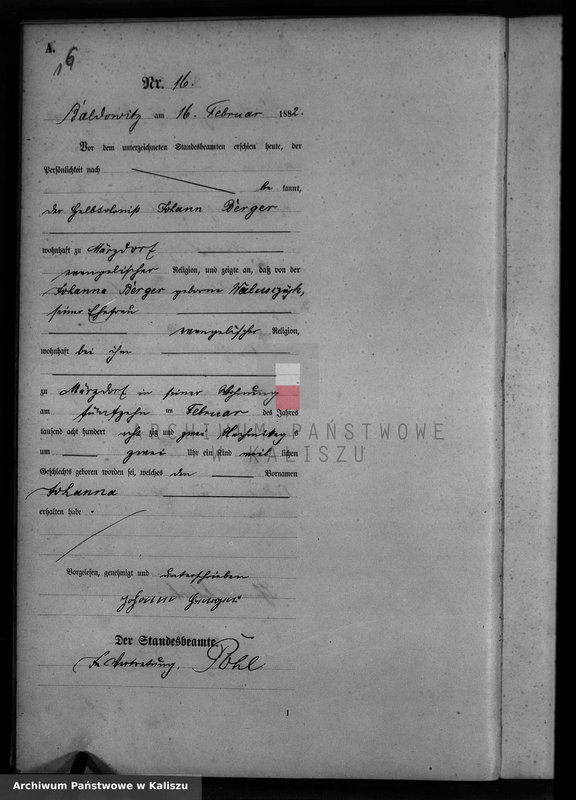 A.
16
Nr. 16.
Baldowitz am 16. Februar 1882.
Vor dem unterzeichneten Standesbeamten erschien heute, der
Persönlichkeit nach
be kannt,
der Johann Berger
wohnhaft zu Märzdorf
evangelischer Religion, und zeigte an, daß von der
Johanna Berger geborne
seiner Ehefrau
evangelischer Religion,
wohnhaft bei ihm
zu Märzdorf in seiner Wohnung
am fünfzehn ten Februar des Jahres
tausend acht hundert acht zig und zwei Nachmittags
um zwei Uhr ein Kind weib lichen
Geschlechts geboren worden sei, welches den Vornamen
Johanna
erhalten habe.
Vorgelesen, genehmigt und unterschrieben
Johann
Der Standesbeamte.
In Vertretung. Pohl
1
ARCHIWUM PAŃSTWOWE
W KALISZU
Archiwum Państwowe w Kaliszu